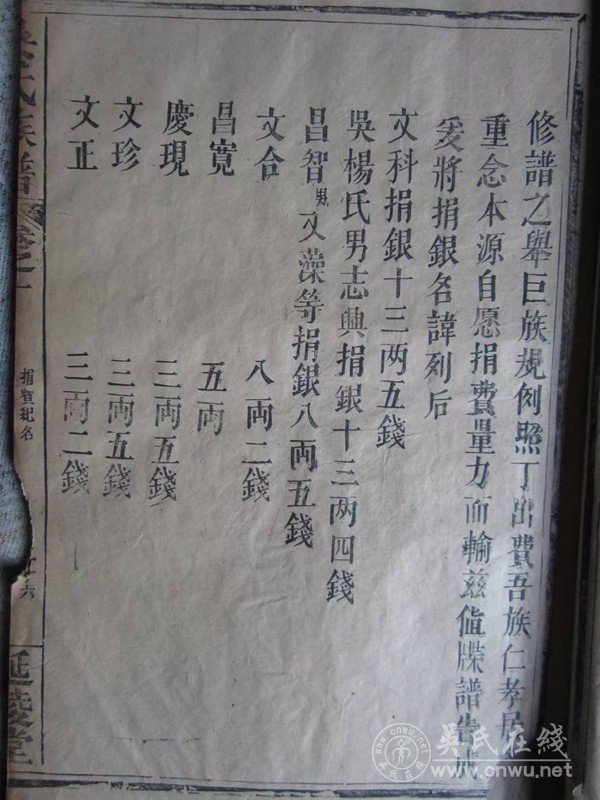 修譜之舉巨族規例照丁出費吾族仁孝居
重念本源自愿捐費量力而輸兹值牒譜告
爰將捐銀名諱列后
文科捐銀十三两五錢
吳楊氏男志興捐銀十三两四錢
昌智男文藻等捐銀八両五錢
文合 八両二錢
昌寬 五両
慶現 三両五錢
文珍 三両五錢
文正 三両二錢
氏族譜 卷之一
捐費紀名
六
延陵堂
吴氏在线
www.cnwu.net